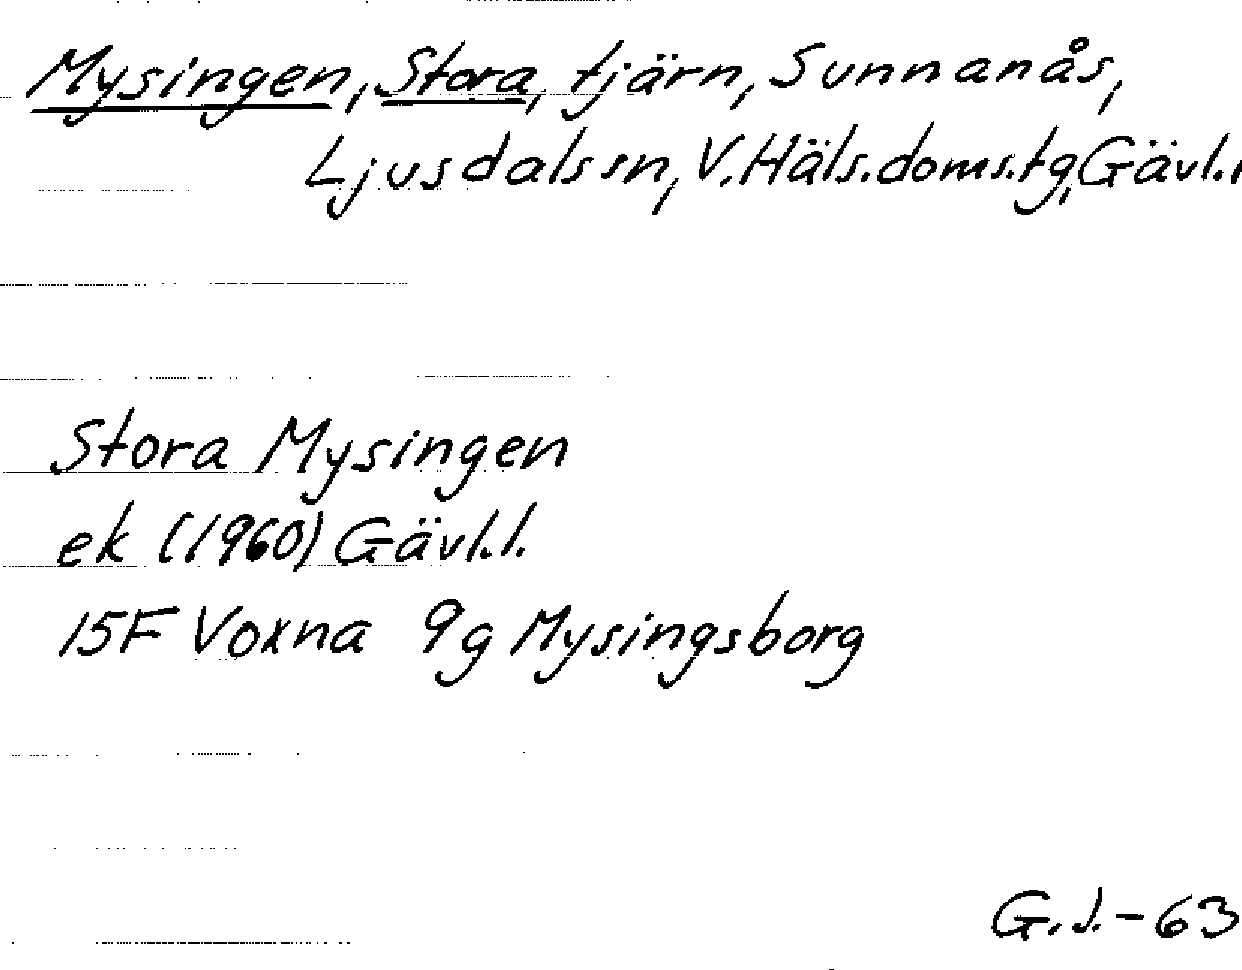 Mysingen, Stora, tjärn, Sunnanås,
Ljusdals sn, V. Häls. doms. tg, Gävl. l
Stora Mysingen
ek (1960) Gävl. l.
15F Voxna 9g Mysingsborg
G.J. - 63